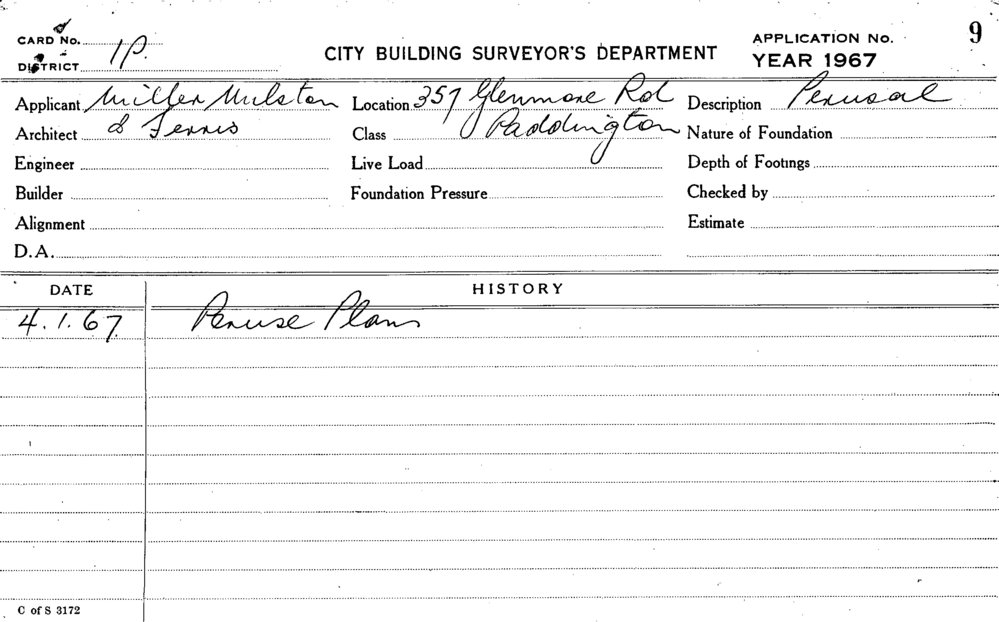 CARD No. 1P.
DISTRICT
CITY BUILDING SURVEYOR'S DEPARTMENT
APPLICATION No. 9
YEAR 1967
Applicant Miller Milston Location 357 Glenmore Rd Description Perusal
Architect & Ferris Class Paddington Nature of Foundation
Engineer Live Load Depth of Footings
Builder Foundation Pressure Checked by
Alignment Estimate
D.A.
DATE HISTORY
4.1.67 Peruse Plans
C of S 3172